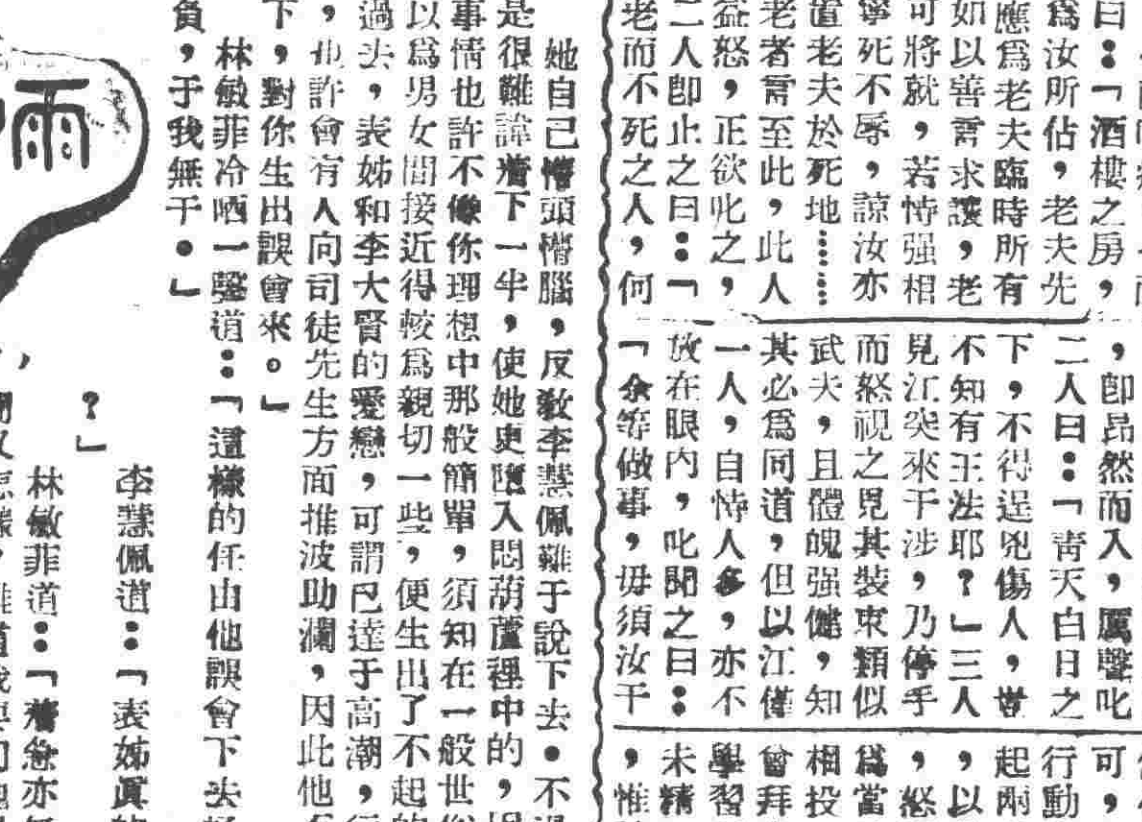 曰：「酒樓之房，
爲汝所佔，老夫先
應爲老夫臨時所有
如以善言求讓，老
可將就，若恃强相
寧死不辱，諒汝亦
置老夫於死地……
老者言至此，此人
益怒，正欲叱之，
二人卽止之曰：「
老而不死之人，何
，卽昂然而入，厲聲叱
二人曰：「靑天白日之
下，不得逞兇傷人，豈
不知有王法耶？」三人
見江突來干涉，乃停手
而怒視之見其裝束類似
武夫，且體魄强健，知
其必爲同道，但以江僅
一人，自恃人多，亦不
放在眼內，叱聞之曰：
「余等做事，毋須汝干
可，
行動
起兩
，以
，怒
爲當
相投
曾拜
學習
未精
，惟
她自己懵頭懵腦，反敎李慧佩難于說下去。不
是很難諱着下一半，使她更墮入悶葫蘆裡中的，
事情也許不像你理想中那般簡單，須知在一般世
以爲男女間接近得較爲親切一些，便生出了不起的
過去，表姊和李大賢的愛戀，可謂已達于高潮，
，也許會有人向司徒先生方面推波助瀾，因此他
下，對你生出誤會來。」
林敏菲冷哂一聲道：「這樣的任由他誤會下去
負，于我無干。」
雨
李慧佩道：「表姊眞
？」
林敏菲道：「着急亦